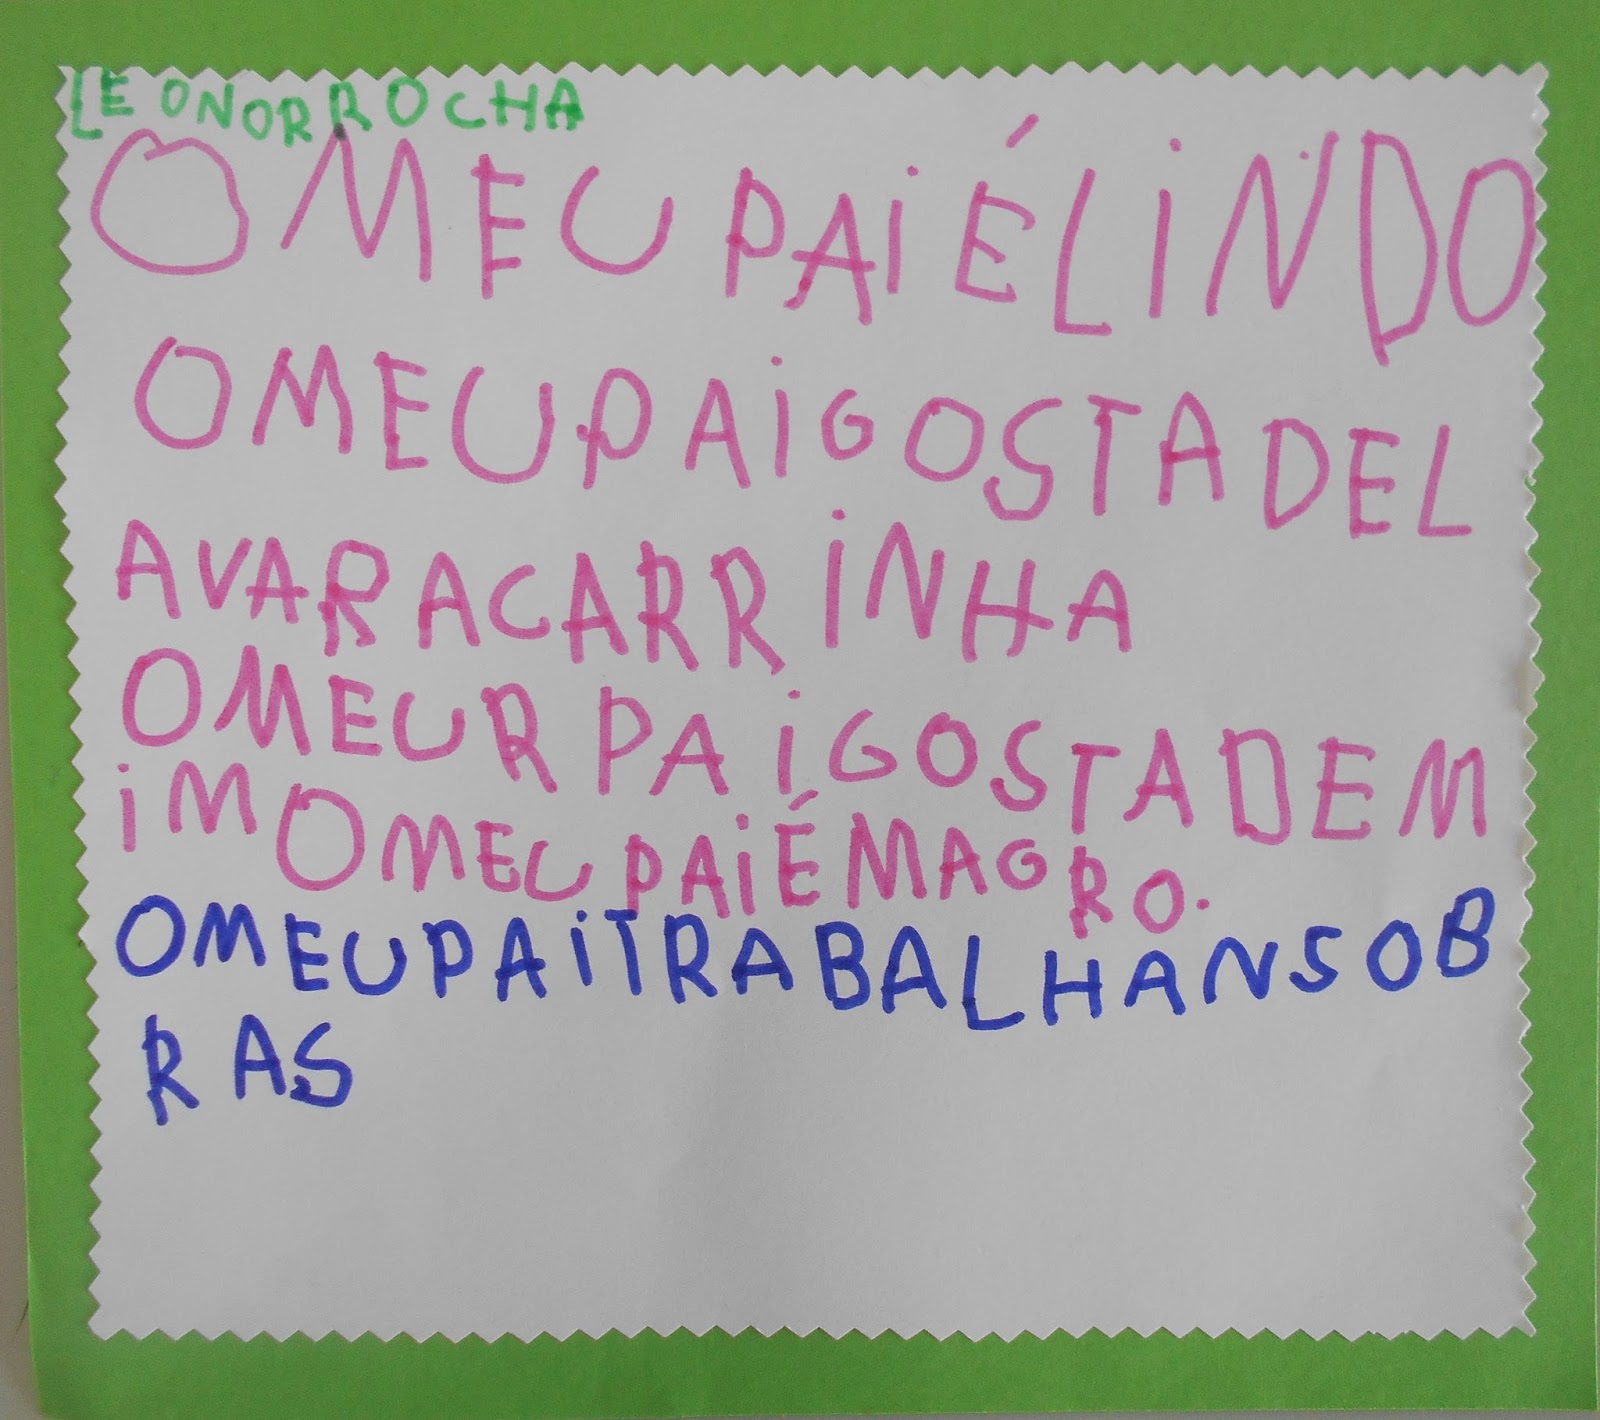 LEONOR ROCHA
OMEUPAiÉLiNDO
OMEUPAiGOSTADEL
AVARACARRiNHA
OMEURPAiGOSTADEM
iMOMEUPAiÉMAGRO.
OMEUPAiTRABALHANSOB
RAS